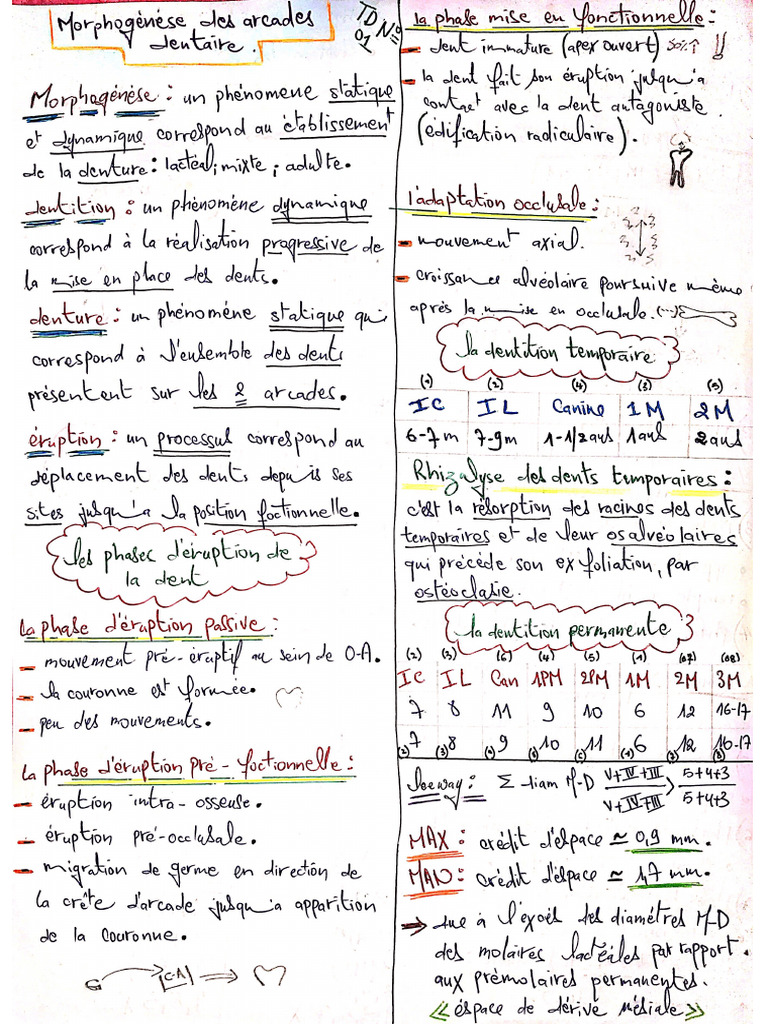 Morphogénése des arcades
dentaire.
TD N°
01
Morphogénése : un phénomene statique
et dynamique correspond au établissement
de la denture : lactéal, mixte, adulte.
dentition : un phénomène dynamique
correspond à la réalisation progressive de
la mise en place des dents.
denture : un phénoméne statique qui
correspond à l'ensemble des dents
présentent sur les 2 arcades.
éruption : un processus correspond au
déplacement des dents depuis ses
sites jusqu'a la position foctionnelle.
les phases d'éruption de
la dent
la phase d'éruption passive :
- mouvement pré-éruptif au sein de O-A.
- la couronne est formée.
- peu des mouvements.
la phase d'éruption pré-foctionnelle :
- éruption intra-osseuse.
- éruption pré-occlusale.
- migration de germe en direction de
la crête d'arcade jusqu'a apparition
de la couronne.
G C-A
la phase mise en fonctionnelle :
- dent immature (apex ouvert) !!
- la dent fait son éruption jusqu'a
contact avec la dent antagoniste.
(édification radiculaire).
l'adaptation occlusale :
- mouvement axial.
- croissance alvéolaire poursuive même
après la mise en occlusale. (...)
la dentition temporaire
(1) (2) (4) (3) (5)
IC IL Canine 1M 2M
6-7m 7-9m 1-1/2ans 1ans 2ans
Rhizalyse des dents temporaires :
c'est la résorption des racines des dents
temporaires et de leur os alvéolaires
qui précède son exfoliation, par
ostéoclasie.
la dentition permanente
(2) (3) (6) (4) (5) (1) (07) (08)
IC IL Can 1PM 2PM 1M 2M 3M
7 8 11 9 10 6 12 16-17
7 8 9 10 11 6 12 16-17
leeway : Σ diam M-D V+IV+III > 5+4+3
V+IV+III 5+4+3
MAX : crédit d'espace ≃ 0,9 mm.
MAN : crédit d'espace ≃ 1,7 mm.
⇒ due à l'excés des diamétres M-D
des molaires lactéales par rapport.
aux prémolaires permanentes.
<< éspace de dérive mésiale >>